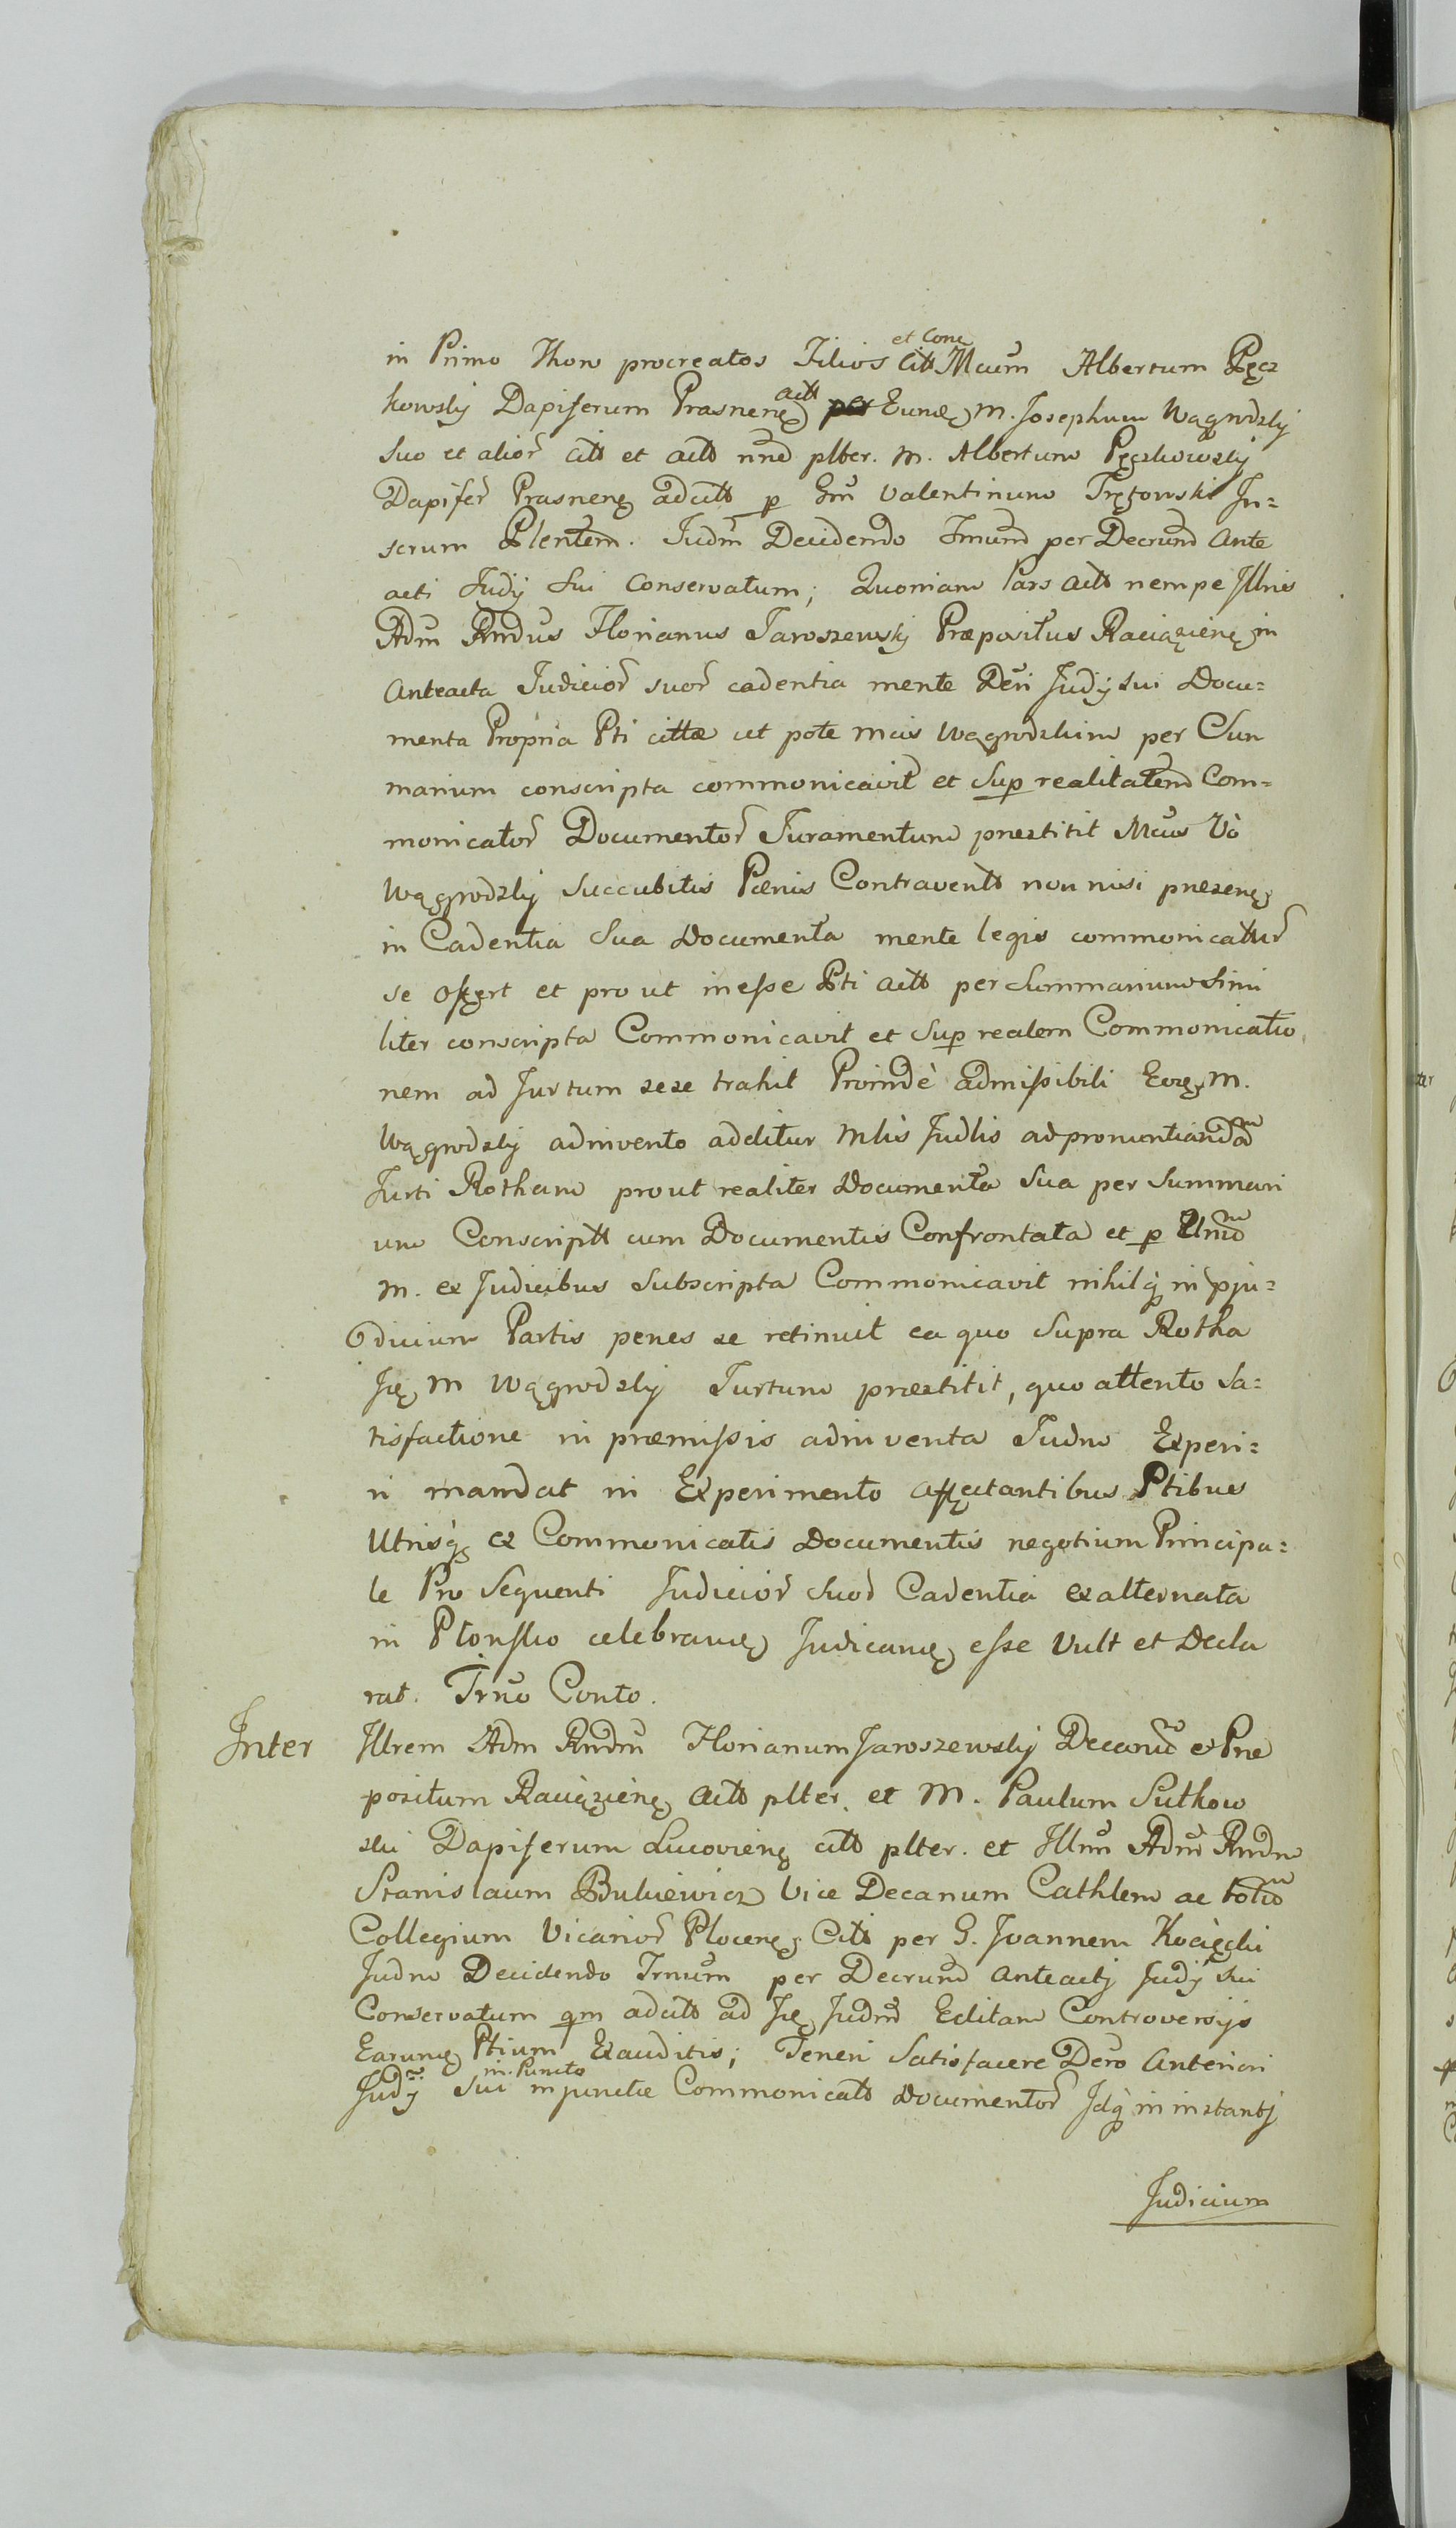 in Primo Thoro procreatos Filios et Conc citt Mcum Albertum Pęcz
kowsky Dapiferum Prasnenę actt Eundę M. Josephum Wągrodzky
suo et alior citt et actt nne plter. M. Albertum Pęczkowsky
Dapifer Prasnenę adcitt p Grm Valentinum Trętowski In=
scrum Plentem. Judm Decidendo Trmum per Decrum Ante
acti Judÿ sui Conservatum; Quoniam Pars actt nempe Illris
Adm Rndus Florianus Jaroszewsky Præpositus Raciązienę in
Anteacta Judicior suor cadentia mente Dcri Judÿ sui Docu=
menta Propria Pti cittæ ut pote Mcis Wągrodzkim per Sum
marium conscripta commonicavit et Sup realitatem Com=
monicator Documentor Juramentum prestitit Mcus Vò
Wągrodzky succubitis Pænis Contraventt non nisi presenę
in Cadentia Sua Documenta mente legis commonicattur
se offert et pro ut inesse Pti actt per Summarium simi
liter conscripta Commonicavit et Sup realem Commonicatio
nem ad Jurtum sese trahit Proindè admissibili Eoę M.
Wągrodzky adinvento additur Mlis Judlis ad pronuntiandam
Jurti Rotham prout realiter Documenta Sua per Summari
um Conscriptt cum Documentis Confrontata et p Unum
M. ex Judicibus Subscripta Commonicavit nihilq in pju=
dicium Partis penes se retinuit ea quo Supra Rotha
Ję M Wągrodzky Jurtum præstitit, quo attento Sa=
tisfactione in præmissis adinventa Judm Experi=
ri mandat in Experimento affectantibus Ptibus
Utrisq ex Commonicatis Documentis negotium Principa=
le Pro Sequenti Judicior Suor Cadentia ex alternata
in Płonsko celebranę Judicanę esse Vult et Decla
rat. Trno Conto.
Inter Illrem Adm Rndm Florianum Jaroszewsky Decanum et Præ
positum Raciązienę actt plter. et M. Paulum Sutkow
ski Dapiferum Lucovienę citt plter. et Illrm Adm Rndm
Stanislaum Bukiewicz Vice Decanum Cathlem ac totum
Collegium Vicarior Plocenę Citt per G. Joannem Kocięcki
Judm Decidendo Trmum per Decrum Anteacti Judÿ sui
Conservatum qm adcitt ad Ję Judm Editam Controversÿs
Earundę Ptium Exauditis; Teneri Satisfacere Dcro Anteriori
Judÿ sui in Puncto injunctæ Commonicatt Documentor Idq in instanti
Judicium